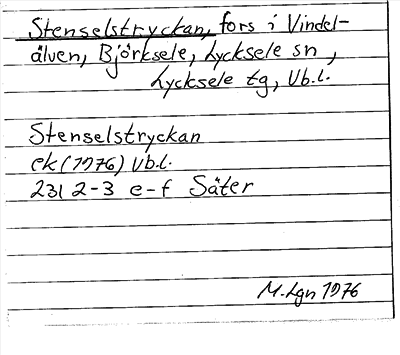 Stenselstryckan, fors i Vindel-
älven, Björksele, Lycksele sn,
Lycksele tg, Vb.l.
Stenselstryckan
ek (1976) Vb.l.
231 2-3 e-f Säter
M. Lgn 1976